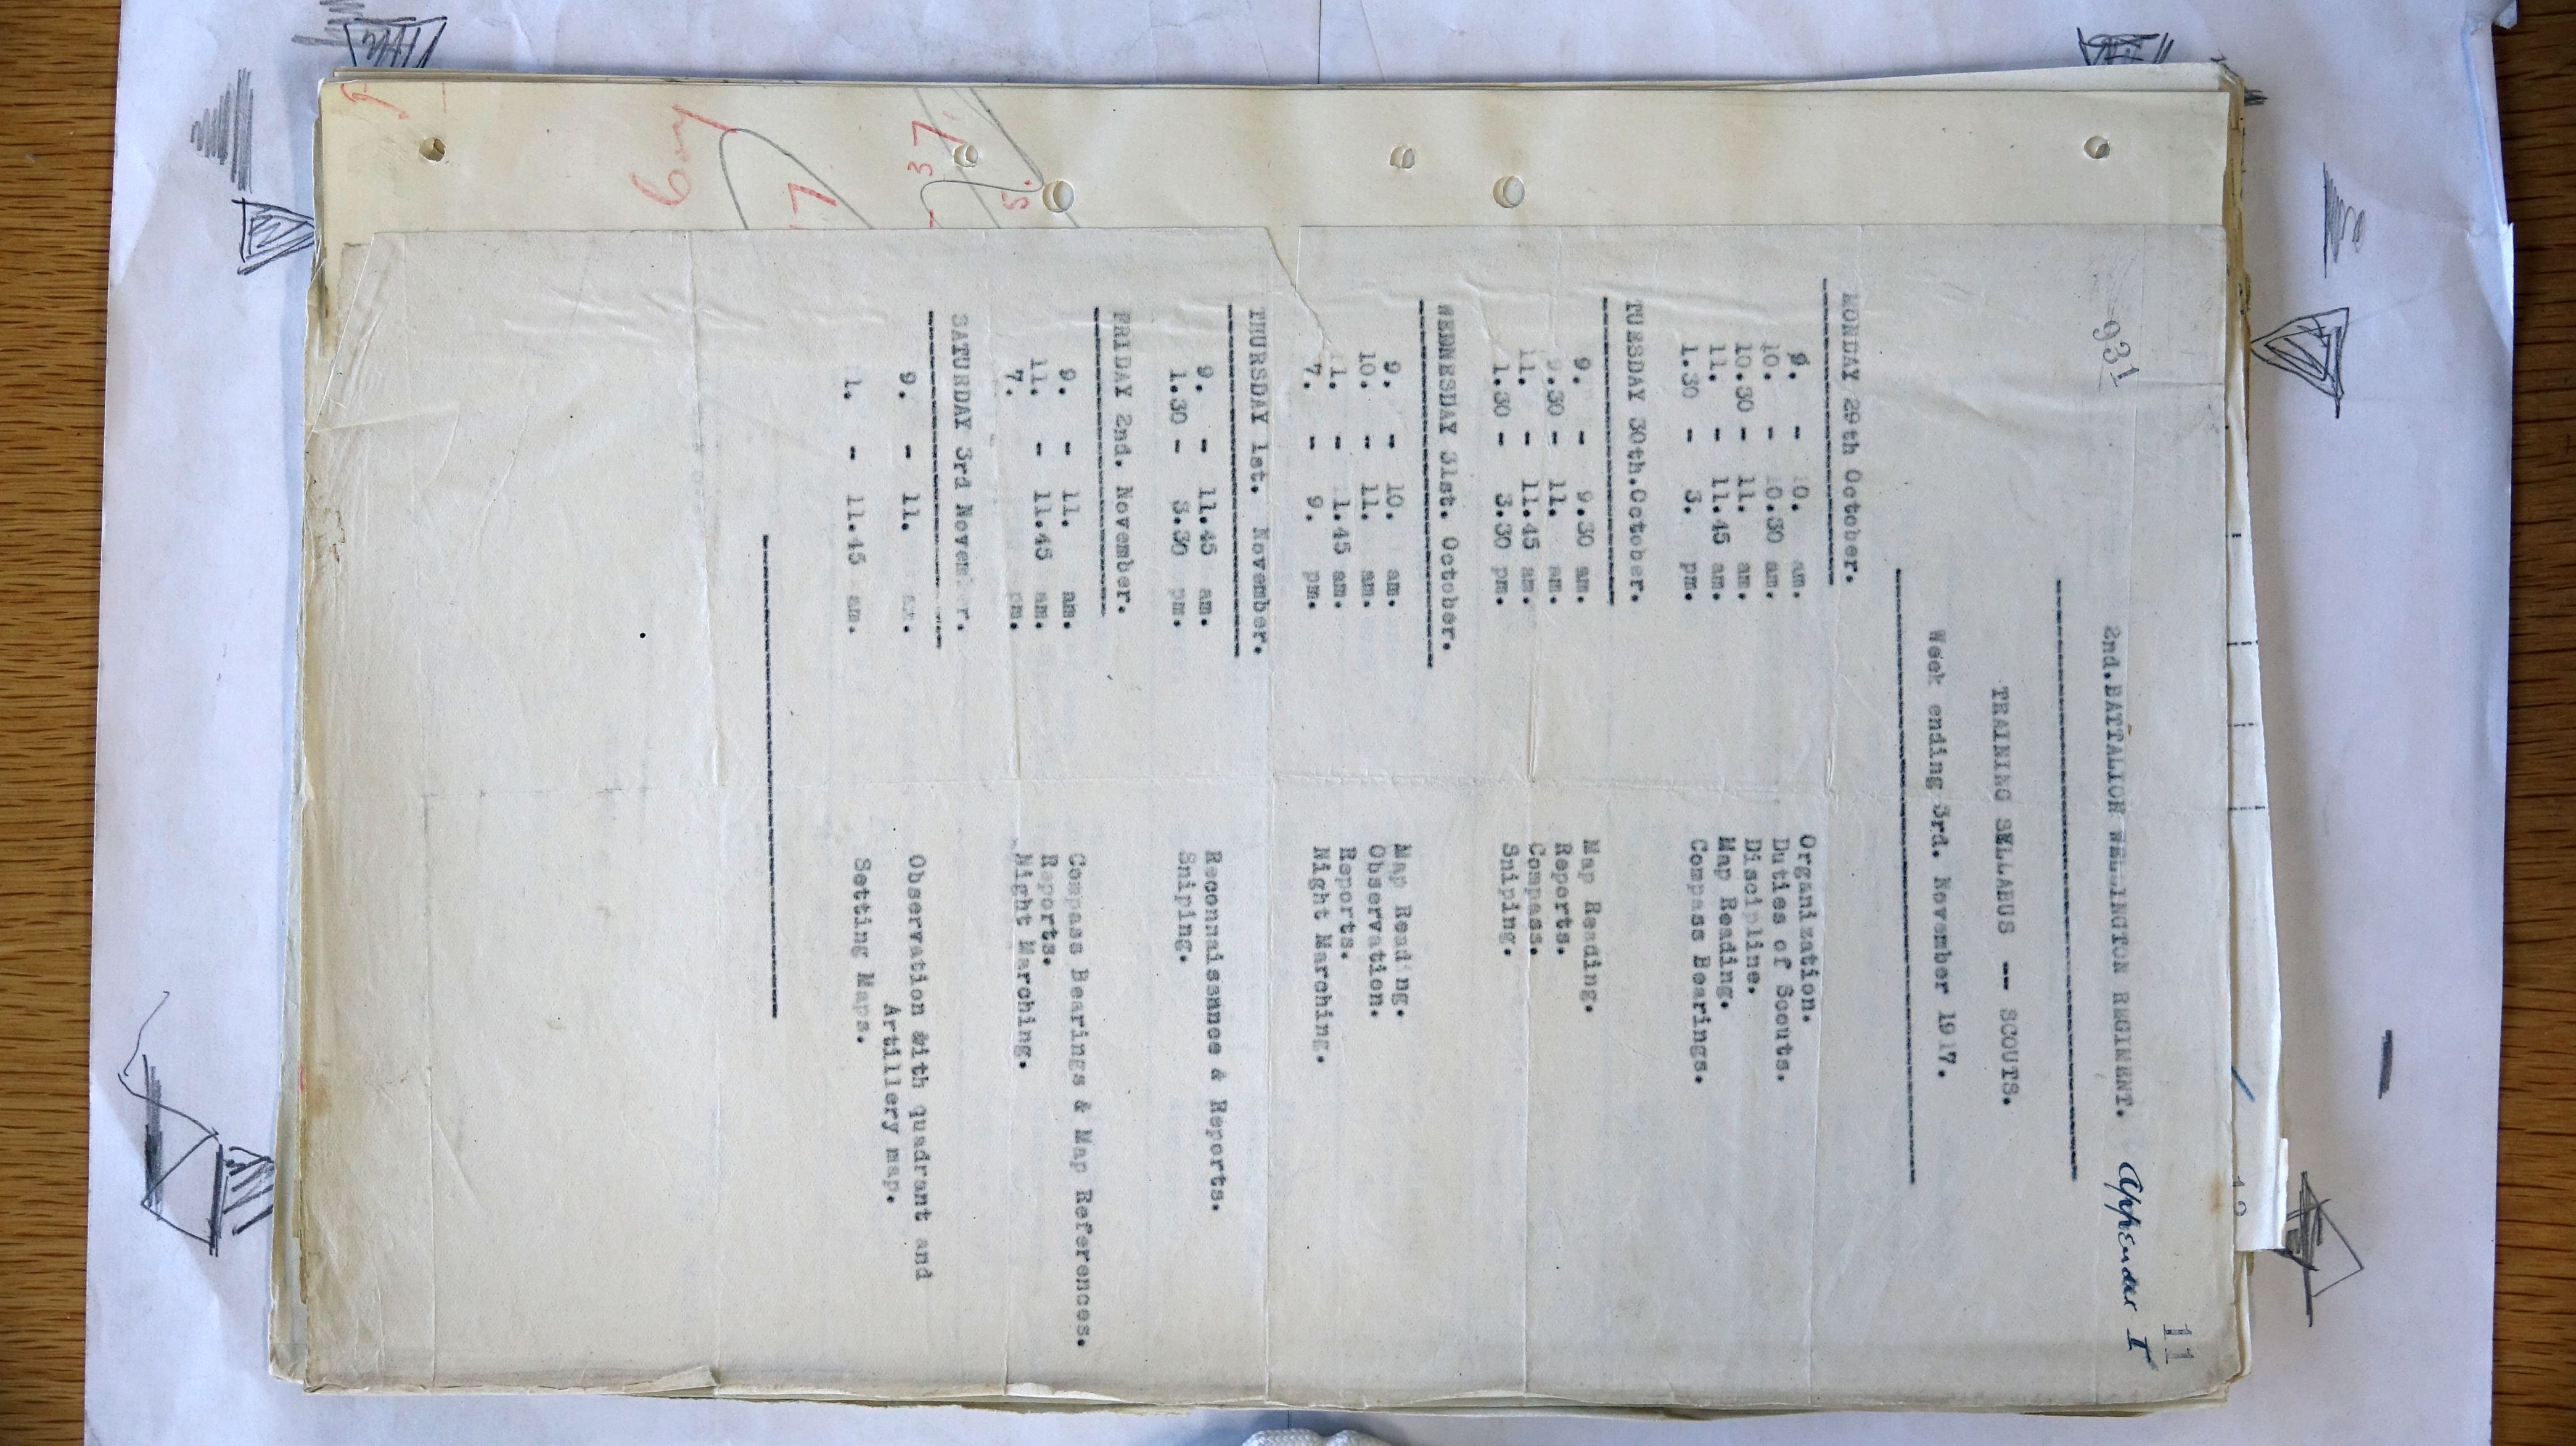 11
931
2nd.BATALION WELLINGTON REGIMENT. Appendex I
TRAINING SELLABUS -- SCOUTS.
Week ending 3rd. November 1917.
MONDAY 29th October.
9. - 10. am. Organization.
10. - 10.30 am. Duties of Scouts.
10.30 - 11. am. Discipline.
11. - 11.45 am. Map Reading.
1.30 - 3. pm. Compass Bearings.
TUESDAY 30th.October.
9. - 9.30 am. Map Reading.
9.30 - 11. am. Reports.
11. - 11.45 am. Compass.
1.30 - 3.30 pm. Sniping.
WEDNESDAY 31st. October.
9. - 10. am. Map Reading.
10. - 11. am. Observation.
11. - 11.45 am. Reports.
7. - 9. pm. Night Marching.
THURSDAY 1st. November.
9. - 11.45 am. Reconnaissance & Reports.
1.30 - 3.30 pm. Sniping.
FRIDAY 2nd. November.
9. - 11. am. Compass Bearings & Map References.
11. - 11.45 am. Reports.
7. pm. Night Marching.
SATURDAY 3rd November.
9. - 11. am. Observation with quadrant and
Artillery map.
1. - 11.45 am. Setting Maps.
37.
5.
7